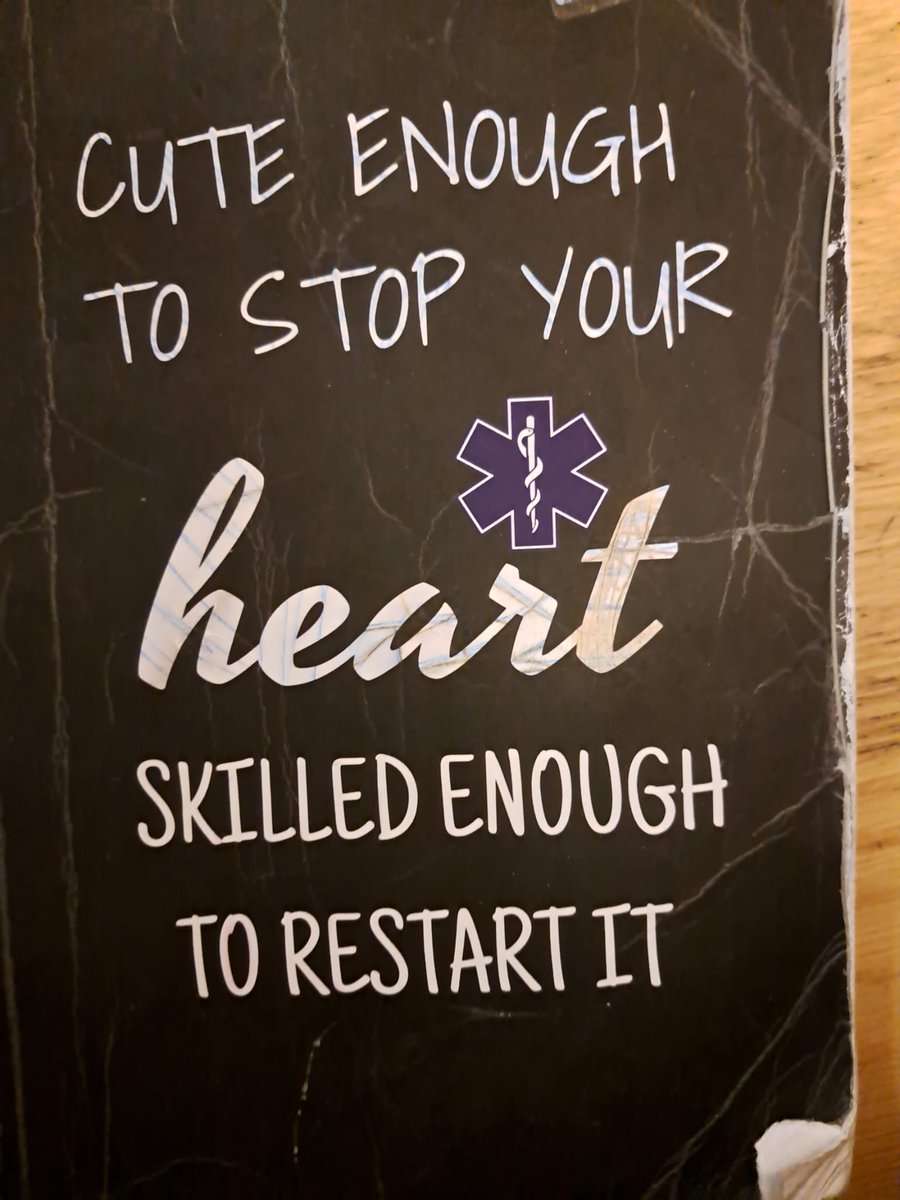 CUTE ENOUGH
TO STOP YOUR
heart
SKILLED ENOUGH
TO RESTART IT